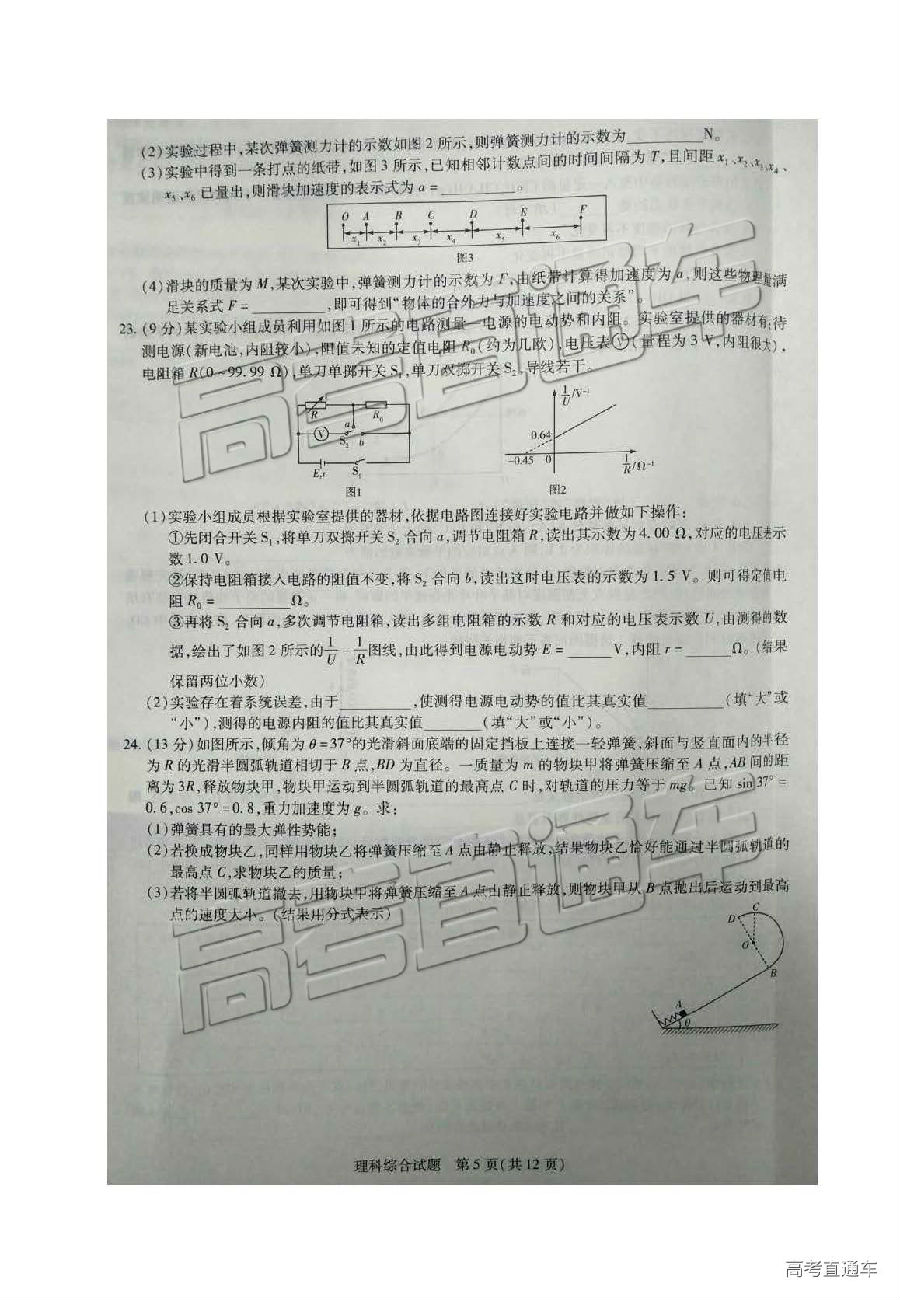 (2)实验过程中,某次弹簧测力计的示数如图2所示,则弹簧测力计的示数为________N。
(3)实验中得到一条打点的纸带,如图3所示,已知相邻计数点间的时间间隔为T,且间距x₁、x₂、x₃、x₄、
x₅、x₆已量出,则滑块加速度的表示式为a=________。
O A B C D E F
x₁ x₂ x₃ x₄ x₅ x₆
图3
(4)滑块的质量为M,某次实验中,弹簧测力计的示数为F,由纸带计算得加速度为a,则这些物理量满
足关系式F=________,即可得到“物体的合外力与加速度之间的关系”。
23.(9分)某实验小组成员利用如图1所示的电路测量一电源的电动势和内阻。实验室提供的器材有:待
测电源(新电池,内阻较小),阻值未知的定值电阻R₀(约为几欧),电压表Ⓥ(量程为3V,内阻很大),
电阻箱R(0~99.99Ω),单刀单掷开关S₁,单刀双掷开关S₂,导线若干。
R R₀
a
V S₂ b
E,r S₁
图1
1/U /V⁻¹
0.64
-0.45 0
1/R /Ω⁻¹
图2
(1)实验小组成员根据实验室提供的器材,依据电路图连接好实验电路并做如下操作:
①先闭合开关S₁,将单刀双掷开关S₂合向a,调节电阻箱R,读出其示数为4.00Ω,对应的电压表示
数1.0V。
②保持电阻箱接入电路的阻值不变,将S₂合向b,读出这时电压表的示数为1.5V。则可得定值电
阻R₀=________Ω。
③再将S₂合向a,多次调节电阻箱,读出多组电阻箱的示数R和对应的电压表示数U,由测得的数
据,绘出了如图2所示的1/U—1/R图线,由此得到电源电动势E=_____V,内阻r=_____Ω。(结果
保留两位小数)
(2)实验存在着系统误差,由于________,使测得电源电动势的值比其真实值________(填“大”或
“小”),测得的电源内阻的值比其真实值______(填“大”或“小”)。
24.(13分)如图所示,倾角为θ=37°的光滑斜面底端的固定挡板上连接一轻弹簧,斜面与竖直面内的半径
为R的光滑半圆弧轨道相切于B点,BD为直径。一质量为m的物块甲将弹簧压缩至A点,AB间的距
离为3R,释放物块甲,物块甲运动到半圆弧轨道的最高点C时,对轨道的压力等于mg。已知sin37°=
0.6,cos37°=0.8,重力加速度为g。求:
(1)弹簧具有的最大弹性势能;
(2)若换成物块乙,同样用物块乙将弹簧压缩至A点由静止释放,结果物块乙恰好能通过半圆弧轨道的
最高点C,求物块乙的质量;
(3)若将半圆弧轨道撤去,用物块甲将弹簧压缩至A点由静止释放,则物块甲从B点抛出后运动到最高
点的速度大小。(结果用分式表示)
C
D
O
B
A
θ
理科综合试题 第5页(共12页)
高考直通车
高考直通车
高考直通车